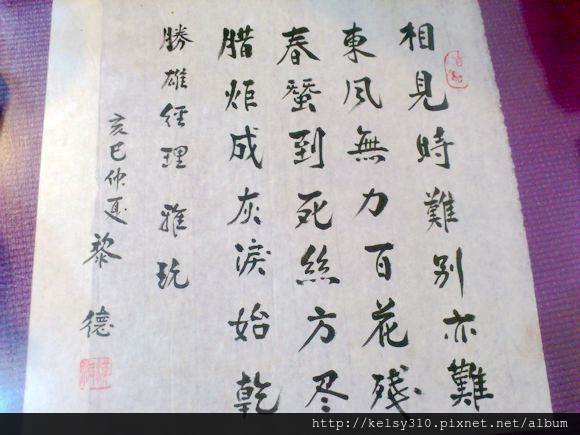 相見時難別亦難
東風無力百花殘
春蠶到死絲方尽
腊炬成灰淚始乾
勝雄經理 雅玩
亥巳仲夏 黎德
http://kelsy310.pixnet.net/album